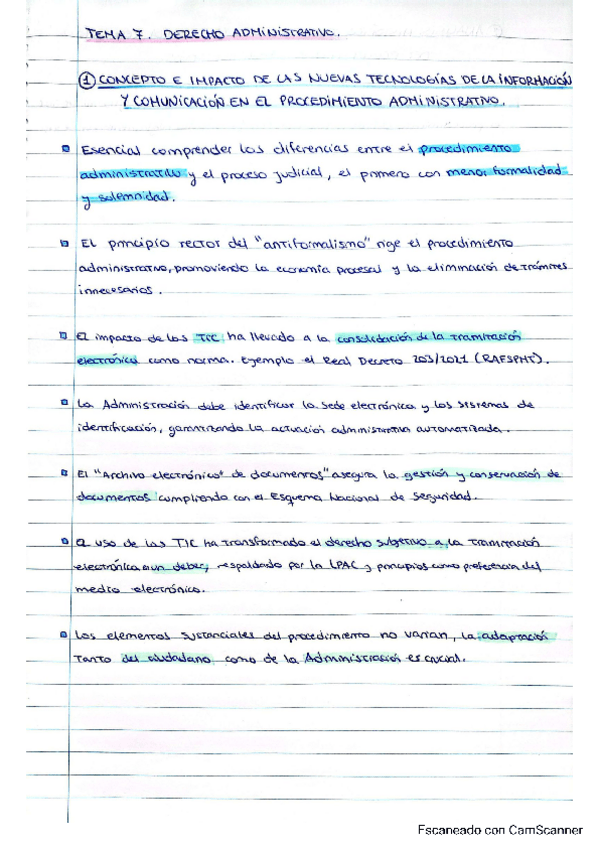 TEMA 7. DERECHO ADMINISTRATIVO.
① CONCEPTO E IMPACTO DE LAS NUEVAS TECNOLOGÍAS DE LA INFORMACIÓN
Y COMUNICACIÓN EN EL PROCEDIMIENTO ADMINISTRATIVO.
Esencial comprender las diferencias entre el procedimiento
administrativo y el proceso judicial, el primero con menor formalidad
y solemnidad.
El principio rector del "antiformalismo" rige el procedimiento
administrativo, promoviendo la economía procesal y la eliminación de trámites
innecesarios.
El impacto de las TIC ha llevado a la consolidación de la tramitación
electrónica como norma. Ejemplo el Real Decreto 203/2021 (RAFSPMT).
La Administración debe identificar la sede electrónica y los sistemas de
identificación, garantizando la actuación administrativa automatizada.
El "Archivo electrónico de documentos" asegura la gestión y conservación de
documentos cumpliendo con el Esquema Nacional de Seguridad.
El uso de las TIC ha transformado el derecho subjetivo a la tramitación
electrónica a un deber, respaldado por la LPAC y principios como preferencia del
medio electrónico.
Los elementos sustanciales del procedimiento no varían, la adaptación
tanto del ciudadano como de la Administración es crucial.
Escaneado con CamScanner